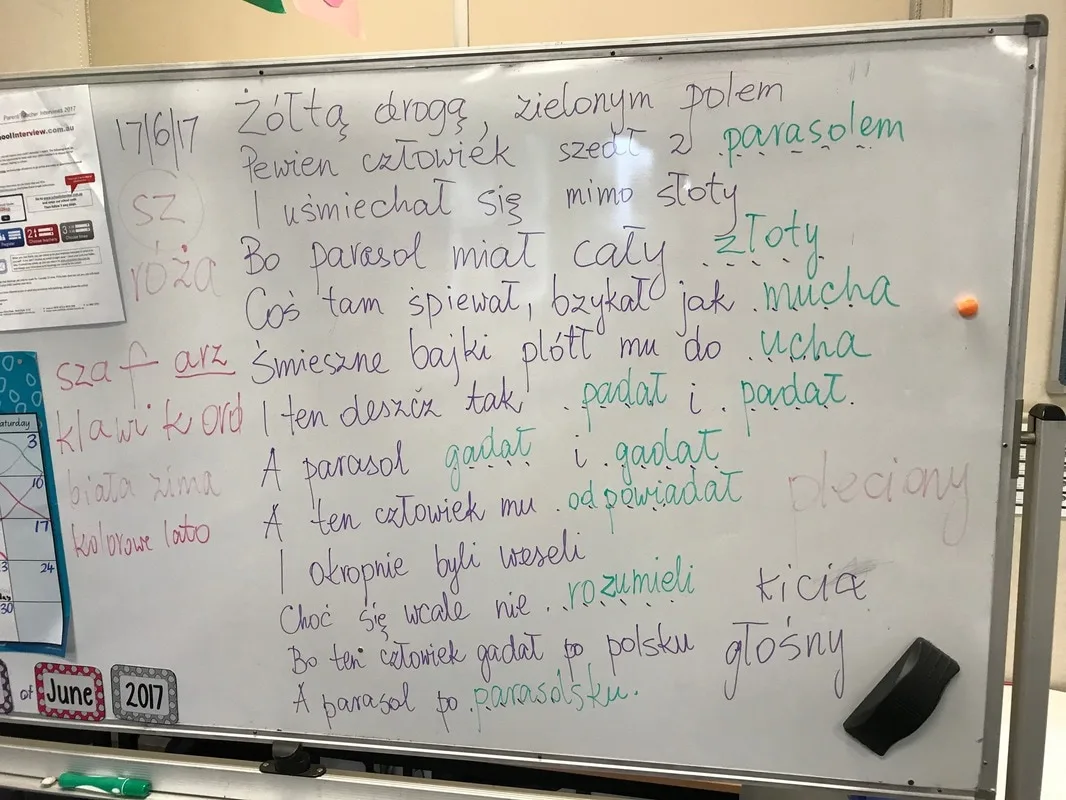 Parent Teacher Interviews 2017
17/6/17
sz
róża
szaf arz
klawi k ord
biała zima
kolorowe lato
Żółtą drogą, zielonym polem
Pewien człowiek szedł z parasolem
I uśmiechał się mimo słoty
Bo parasol miał cały złoty
Coś tam śpiewał, bzykał jak mucha
Śmieszne bajki plótł mu do ucha
I ten deszcz tak padał i padał.
A parasol gadał i gadał
A ten człowiek mu odpowiadał
I okropnie byli weseli
Choć się wcale nie rozumieli
Bo ten człowiek gadał po polsku
A parasol po parasolsku.
pleciony
kicia
głośny
aturday
3
10
17
24
30
of June 2017